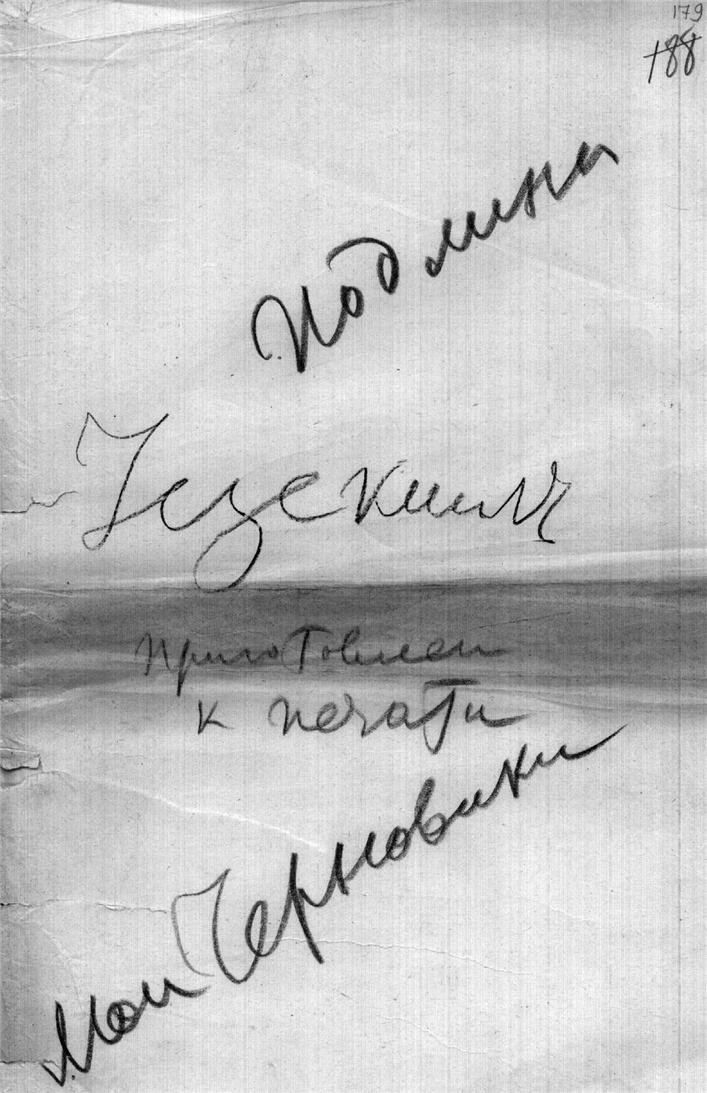 179
188
Подлина
Иезекииль
приготовлен
к печати
Мои Черновики